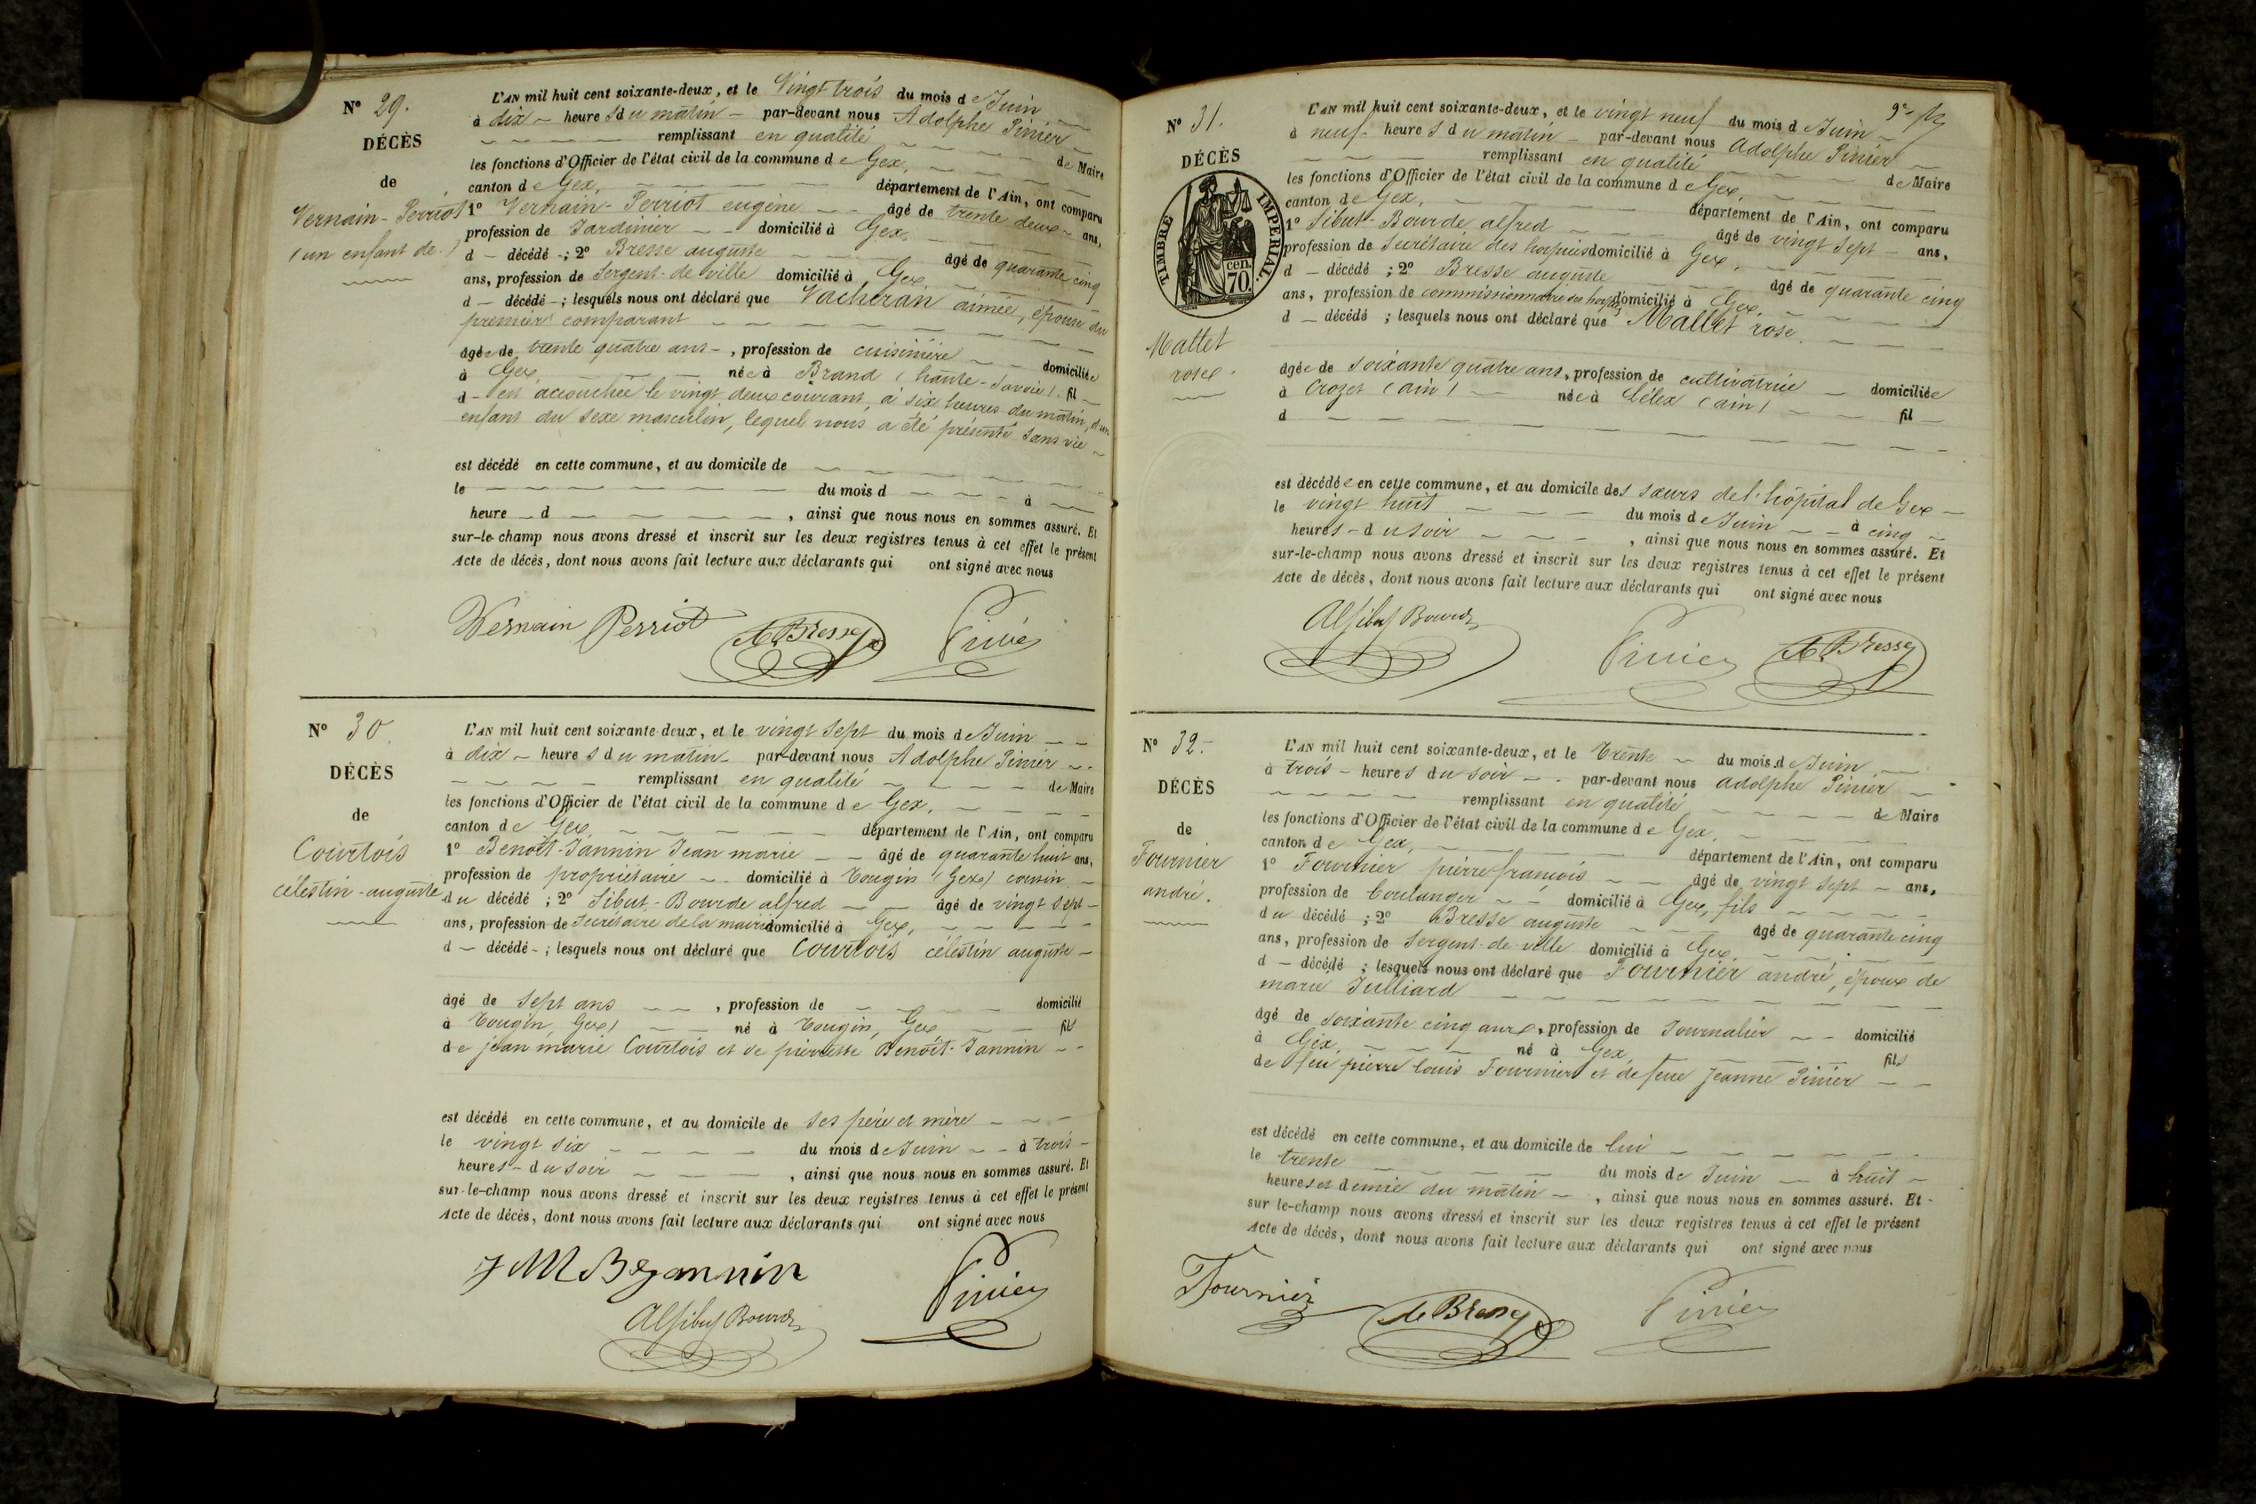 N° 29.
DÉCÈS
de
Vernain-Perriot
(un enfant de)
L'AN mil huit cent soixante-deux, et le Vingt trois du mois de Juin
à dix heures du matin par-devant nous Adolphe Pinier
remplissant en qualité de Maire
les fonctions d'Officier de l'état civil de la commune de Gex,
canton de Gex, département de l'Ain, ont comparu
1° Vernain-Perriot eugène âgé de trente deux ans,
profession de Jardinier domicilié à Gex,
d décédé ; 2° Bresse auguste âgé de quarante cinq
ans, profession de Sergent-de ville domicilié à Gex
d décédé ; lesquels nous ont déclaré que Vacheran aimée, épouse du
premier comparant
âgée de trente quatre ans, profession de cuisinière domiciliée
à Gex née à Brand (haute-Savoie). fil
d est accouchée le vingt deux courant, à six heures du matin, d'un
enfant du sexe masculin, lequel nous a été présenté sans vie
est décédé en cette commune, et au domicile de
le du mois d à
heure d , ainsi que nous nous en sommes assuré. Et
sur-le-champ nous avons dressé et inscrit sur les deux registres tenus à cet effet le présent
Acte de décès, dont nous avons fait lecture aux déclarants qui ont signé avec nous
Vernain Perriot A Bresse Pinier
N° 30
DÉCÈS
de
Courtois
célestin-auguste
L'AN mil huit cent soixante-deux, et le vingt sept du mois de Juin
à dix heures du matin par-devant nous Adolphe Pinier
remplissant en qualité de Maire
les fonctions d'Officier de l'état civil de la commune de Gex,
canton de Gex département de l'Ain, ont comparu
1° Benoît-Jannin Jean marie âgé de quarante huit ans,
profession de propriétaire domicilié à Tougin (Gex) cousin
du décédé ; 2° Sibut-Bourde alfred âgé de vingt sept
ans, profession de Secrétaire de la mairie domicilié à Gex,
d décédé ; lesquels nous ont déclaré que Courtois célestin auguste
âgé de Sept ans , profession de domicilié
à Tougin, Gex) né à Tougin, Gex fils
de jean marie Courtois et de pierrette Benoît-Jannin
est décédé en cette commune, et au domicile de ses père et mère
le vingt six du mois de Juin à trois
heures du soir , ainsi que nous nous en sommes assuré. Et
sur-le-champ nous avons dressé et inscrit sur les deux registres tenus à cet effet le présent
Acte de décès, dont nous avons fait lecture aux déclarants qui ont signé avec nous
J M Bejannin Pinier
Al Sibut Bourde
N° 31.
DÉCÈS
TIMBRE IMPÉRIAL.
cen.
70.
Mallet
rose.
L'AN mil huit cent soixante-deux, et le vingt neuf du mois de Juin
à neuf heures du matin par-devant nous Adolphe Pinier
remplissant en qualité de Maire
les fonctions d'Officier de l'état civil de la commune de Gex,
canton de Gex, département de l'Ain, ont comparu
1° Sibut-Bourde alfred âgé de vingt sept ans,
profession de Secrétaire des hospices domicilié à Gex,
d décédé ; 2° Bresse auguste âgé de quarante cinq
ans, profession de commissionnaire des hospices domicilié à Gex,
d décédé ; lesquels nous ont déclaré que Mallet rose.
âgée de soixante quatre ans, profession de cultivatrice domiciliée
à Crozet (ain) née à Lélex (ain) fil
d
est décédée en cette commune, et au domicile des sœurs de l'hôpital de Gex
le vingt huit du mois de Juin à cinq
heures du soir , ainsi que nous nous en sommes assuré. Et
sur-le-champ nous avons dressé et inscrit sur les deux registres tenus à cet effet le présent
Acte de décès, dont nous avons fait lecture aux déclarants qui ont signé avec nous
Al Sibut Bourde Pinier A Bresse
N° 32.
DÉCÈS
de
Fournier
andré.
L'AN mil huit cent soixante-deux, et le Trente du mois de Juin
à trois heures du soir par-devant nous Adolphe Pinier
remplissant en qualité de Maire
les fonctions d'Officier de l'état civil de la commune de Gex,
canton de Gex, département de l'Ain, ont comparu
1° Fournier pierre françois âgé de vingt sept ans,
profession de boulanger domicilié à Gex, fils
du décédé ; 2° Bresse auguste âgé de quarante cinq
ans, profession de Sergent-de-ville domicilié à Gex,
d décédé ; lesquels nous ont déclaré que Fournier andré, époux de
marie Julliard
âgé de soixante cinq ans, profession de Journalier domicilié
à Gex né à Gex fils
de feu pierre louis Fournier et de feue Jeanne Pinier
est décédé en cette commune, et au domicile de lui
le trente du mois de Juin à huit
heures et demie du matin , ainsi que nous nous en sommes assuré. Et
sur le-champ nous avons dressé et inscrit sur les deux registres tenus à cet effet le présent
Acte de décès, dont nous avons fait lecture aux déclarants qui ont signé avec nous
Fournier A Bresse Pinier